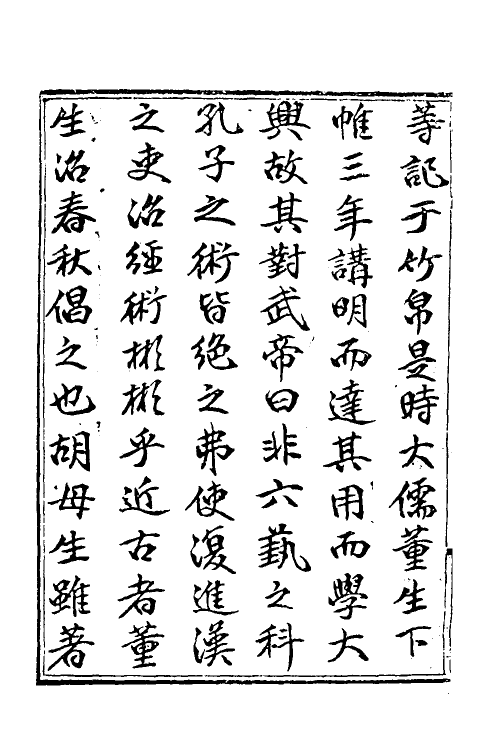 等記于竹帛是時大儒董生下
帷三年講明而達其用而學大
興故其對武帝曰非六藝之科
孔子之術皆絶之弗使復進漢
之吏治經術彬彬乎近古者董
生治春秋倡之也胡母生雖著